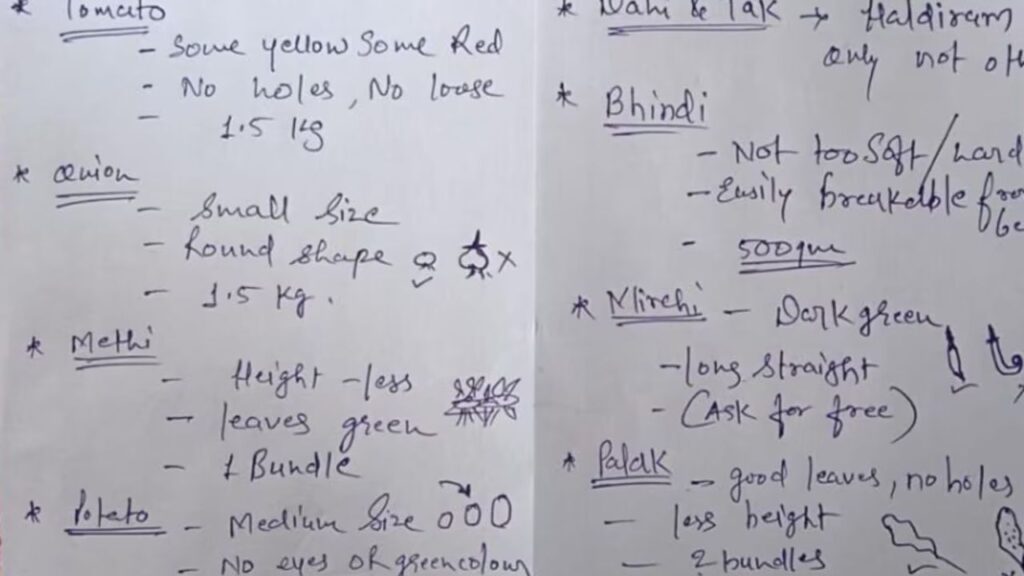 * Tomato
- Some yellow Some Red
- No holes, No loose
- 1.5 Kg
* onion
- Small Size
- Round shape
- 1.5 Kg.
* Methi
- Height - less
- leaves green
- 1 Bundle
* Potato - Medium Size
- No eyes or green colour
* Dahi & Tak → Haldiram
only not oth
* Bhindi
- Not too Soft/hard
- Easily breakable from
be
- 500gm
* Mirchi - Dark green
- long straight
- (Ask for free)
* Palak - good leaves, no holes
- less height
- 2 bundles